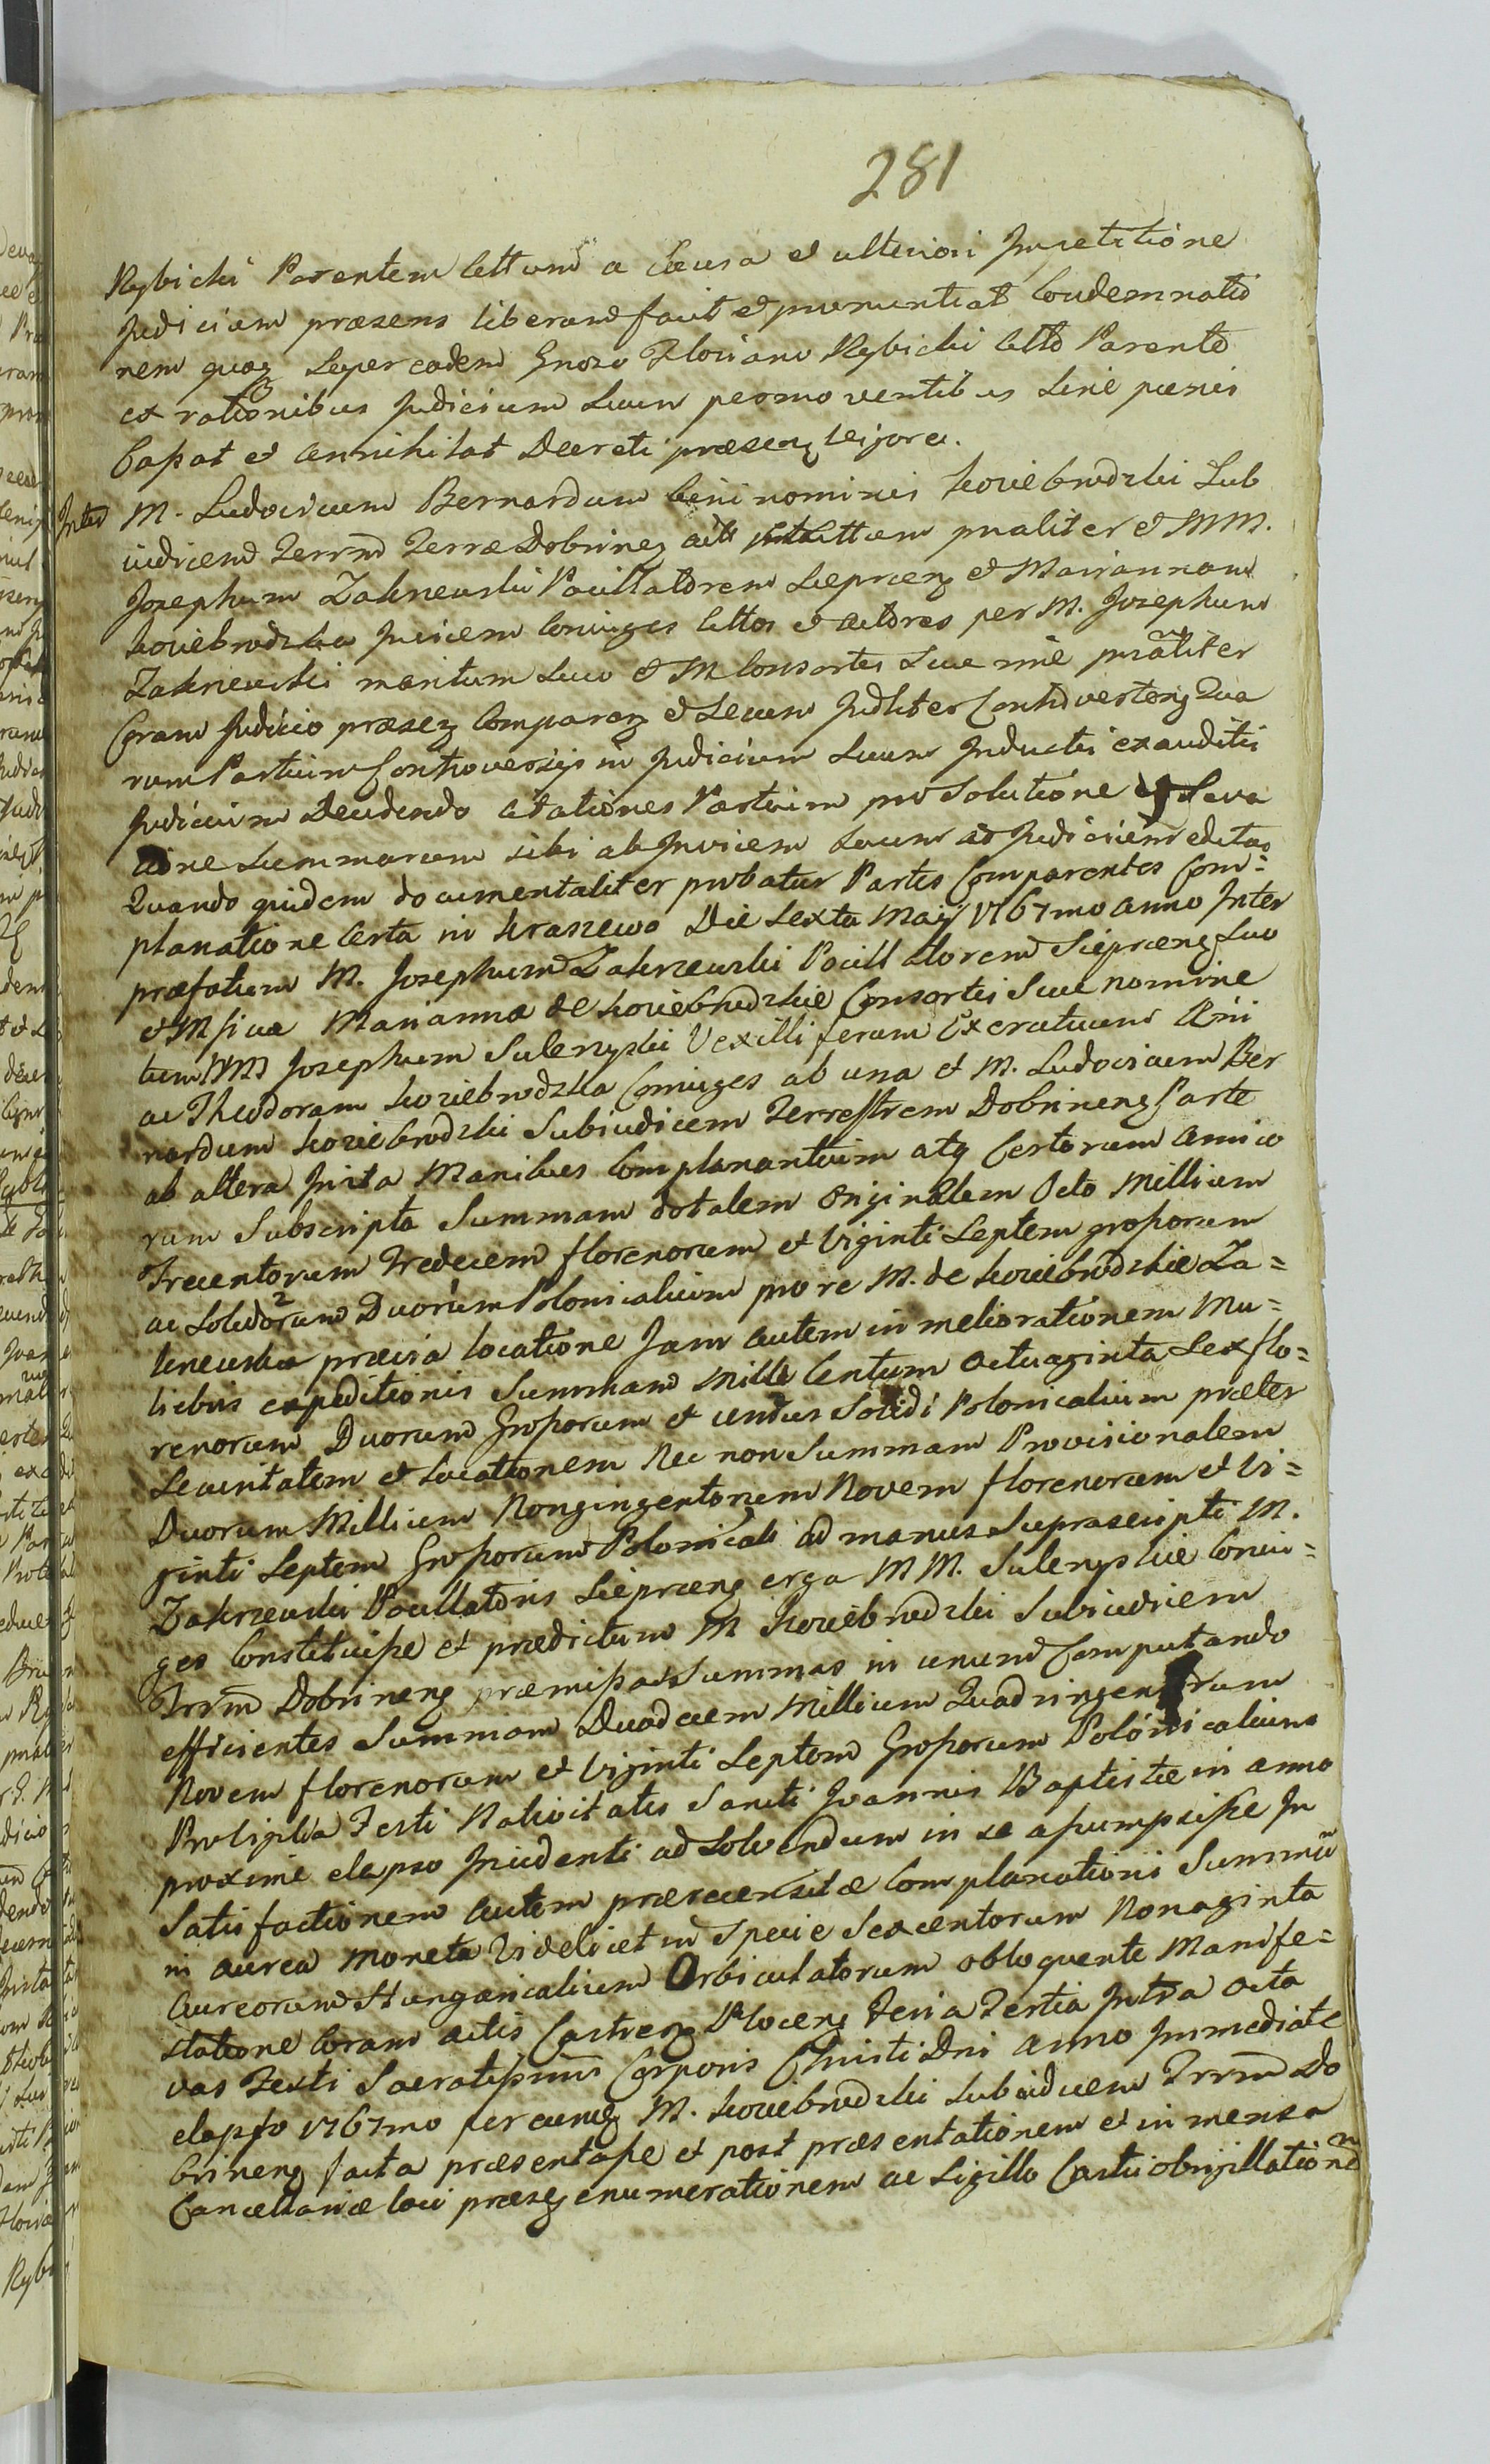 281
Rybicki Parentem Cittum a Causa et ulteriori Impetitione
Judicium præsens liberum facit et pronuntiat Condemnatio
nem quoq super eodem Gnoso Floriano Rybicki Citto Parente
ex rationibus Judicium Suum permoventibus Sine pœnis
Cassat et annihilat Decreti præsenz vigore.
Inter M. Ludovicum Bernardum bini nominis Koziebrodzki Sub
iudicem Terrm Terræ Dobrinez Cittum pnaliter et MM.
Josephum Zakrzewski Pocillatorem Sieprcenz et Mariannam
Koziebrodzka Invicem Coniuges Cittos et Actores per M. Josephum
Zakrzewski maritum Suum et M Consortis Suæ nne pnaliter
Coram Judicio præsez Comparenz et Secum Judliter Controvertenz Qua
rum Partium Controversijs in Judicium Suum Inductis exauditis
Judicium Decidendo Citationes Partium pro Solutione et Leva
tione Summarum sibi ab Invicem Suum ad Judicium editas
Quando quidem documentaliter probatur Partes Comparentes Com=
planatione Certa in Kraszewo Die Sexta Maij 1767mo Anno Inter
præfatum M. Josephum Zakrzewski Pocillatorem Sieprcenz Suo
et Msicæ Mariannæ de Koziebrodzkie Consortis Suæ nomine
tum MM Josephum Sulenyski Vexilliferum Exercituum
ac Theodoram Koziebrodzka Coniuges ab una et M. Ludovicum Ber
nardum Koziebrodzki Subiudicem Terrestrem Dobrinenz Parte
ab altera Inita Manibus Complanantium atq Certorum Amico
rum Subscripta Summam dotalem Originalem Octo Millium
Trecentorum Tredecem florenorum et Viginti Septem grossorum
ac Solidorum 2 Duorum Polonicalium pro re M. de Koziebrodzkie Za=
krzewska prævia locatione Jam autem in meliorationem Mu=
liebris expeditionis Summam Mille Centum Octuaginta Sex flo=
renorum Duorum Grossorum et unius Solidi Polonicalium præter
Securitatem et Locationem Nec non Summam Provisionalem
Duorum Millium Nongingentorum Novem florenorum et Vi=
ginti Septem Grossorum Polonicali ad manus Suprascripti M.
Zakrzewski Pocillatoris Sieprcenz erga MM. Sulenyskie Coniu=
ges Constituisse et prædictum M Koziebrodzki Subiudicem
Trrm Dobrinenz præmissas Summas in unum Computando
efficientes Summam Duodecem Millium Quadringentorum
Novem florenorum et Viginti Septem Grossorum Polonicalium
Pro Festi Nativitatis Sancti Joannis Baptistæ in anno
proxime elapso Incidenti ad Solvendum in se assumpsisse In
Satisfactionem autem prærecensitæ Complanationis Summam
in aurea Moneta Videlicet in Specie Sexcentorum Nonaginta
Aureorum Hungaricalium Orbiculatorum obloquente Manife=
statione Coram Actis Castrenz Plocenz Feria Tertia Intra Octa
vas Festi Sacratissimi Corporis Christi Dni Anno Immediate
elapso 1767mo per eundz M. Koziebrodzki Subiudicem Trrm Do
brinenz facta præsentasse et post præsentationem et in mensa
Cancellariæ loci præsez enumerationem ac Sigillo Castri obsigillationem